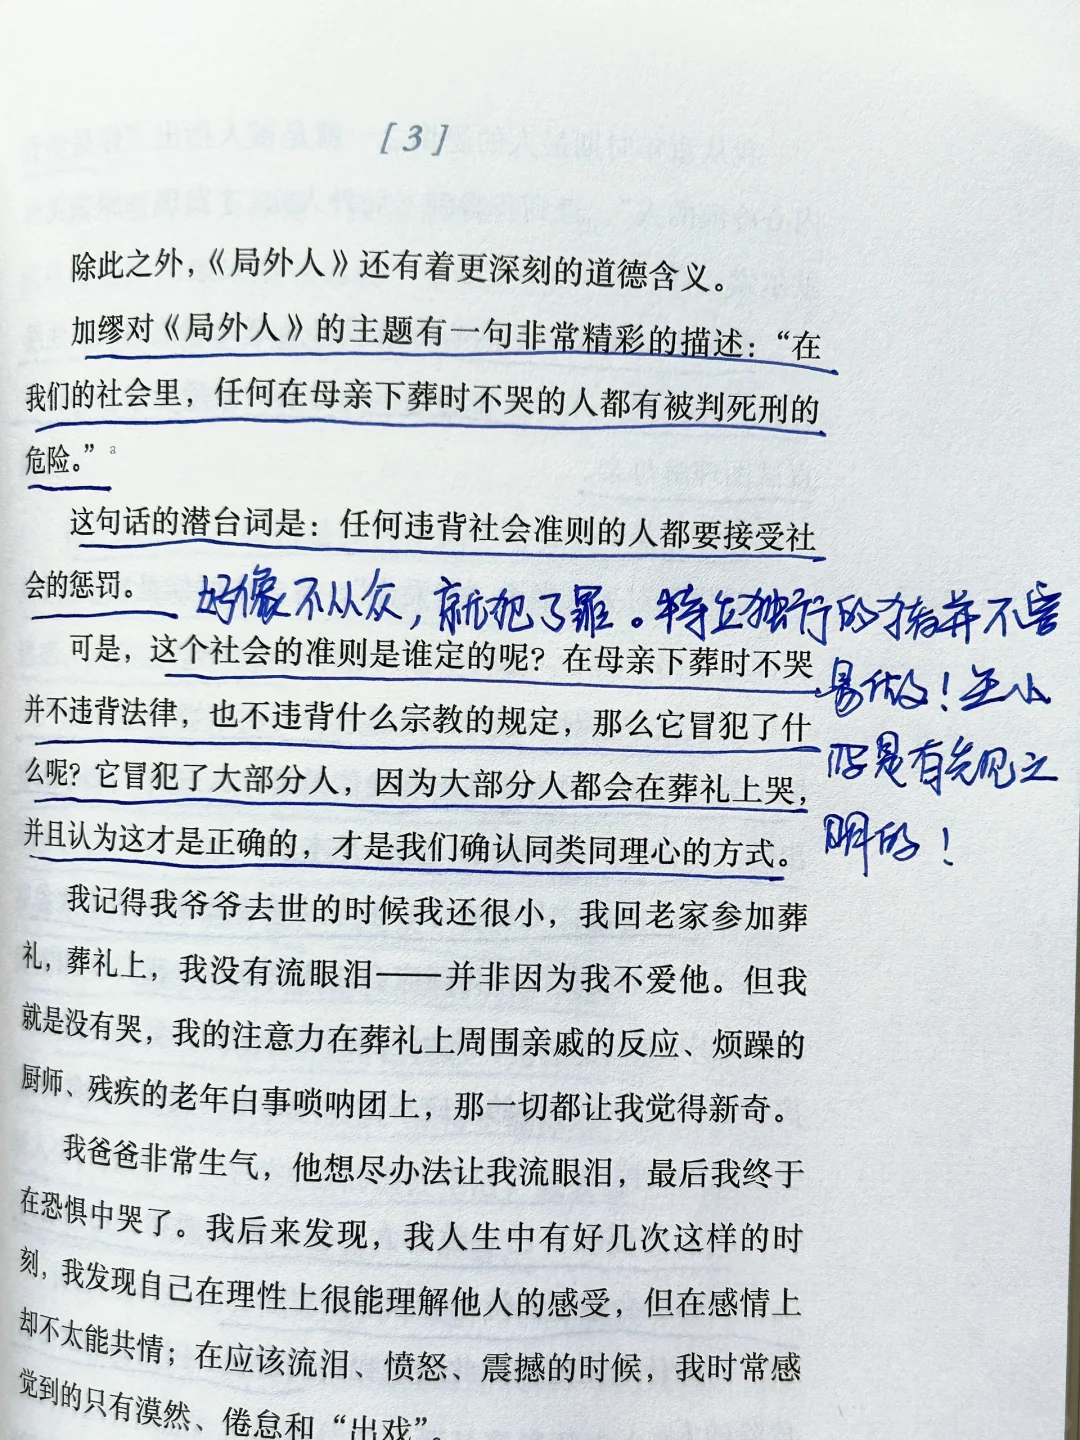 [3]
除此之外，《局外人》还有着更深刻的道德含义。
加缪对《局外人》的主题有一句非常精彩的描述：“在
我们的社会里，任何在母亲下葬时不哭的人都有被判死刑的
危险。”a
这句话的潜台词是：任何违背社会准则的人都要接受社
会的惩罚。
好像不从众，就犯了罪。特立独行的猪并不容
易做！王小
波是有先见之
明的！
可是，这个社会的准则是谁定的呢？在母亲下葬时不哭
并不违背法律，也不违背什么宗教的规定，那么它冒犯了什
么呢？它冒犯了大部分人，因为大部分人都会在葬礼上哭，
并且认为这才是正确的，才是我们确认同类同理心的方式。
我记得我爷爷去世的时候我还很小，我回老家参加葬
礼，葬礼上，我没有流眼泪——并非因为我不爱他。但我
就是没有哭，我的注意力在葬礼上周围亲戚的反应、烦躁的
厨师、残疾的老年白事唢呐团上，那一切都让我觉得新奇。
我爸爸非常生气，他想尽办法让我流眼泪，最后我终于
在恐惧中哭了。我后来发现，我人生中有好几次这样的时
刻，我发现自己在理性上很能理解他人的感受，但在感情上
却不太能共情；在应该流泪、愤怒、震撼的时候，我时常感
觉到的只有漠然、倦怠和“出戏”。